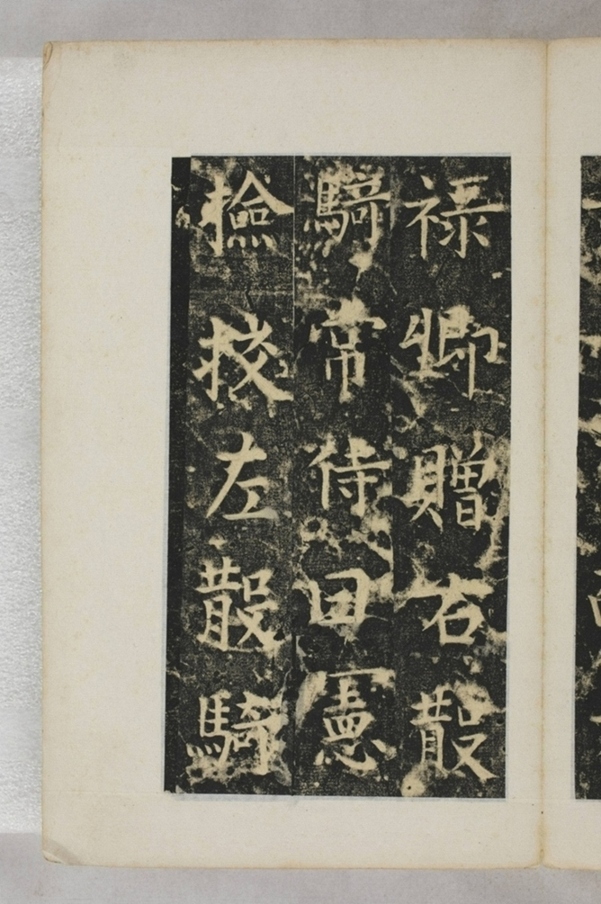 禄卿贈右散
騎常侍曰憲
檢校左散騎